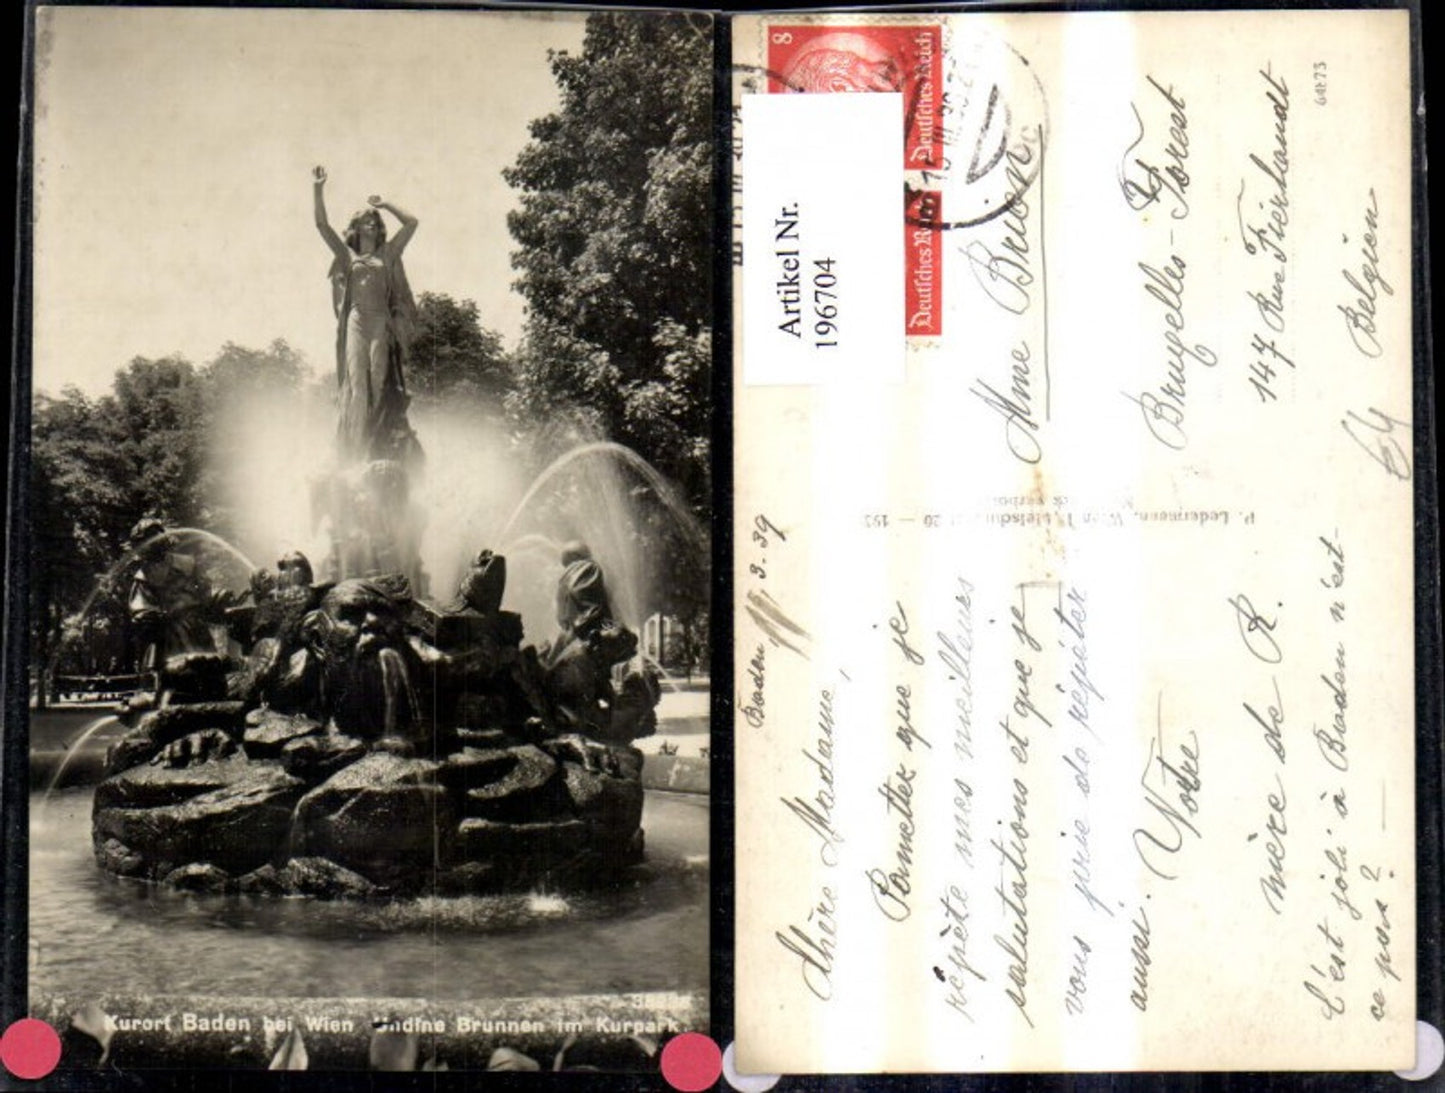 Kurort Baden bei Wien Undine Brunnen im Kurpark
8
Deutsches Reich
Deutsches Reich
Artikel Nr.
196704
64873
Baden 15, 3. 39
Chère Madame,
Permettez que je
répète mes meilleures
salutations et que je
vous prie de répéter
aussi. Votre
mère de R.
C'est joli à Baden n'est-
ce pas?
Mme Brion
Bruxelles-Forest
147 Rue Fierlandt
Belgien
P. Ledermann, Wien